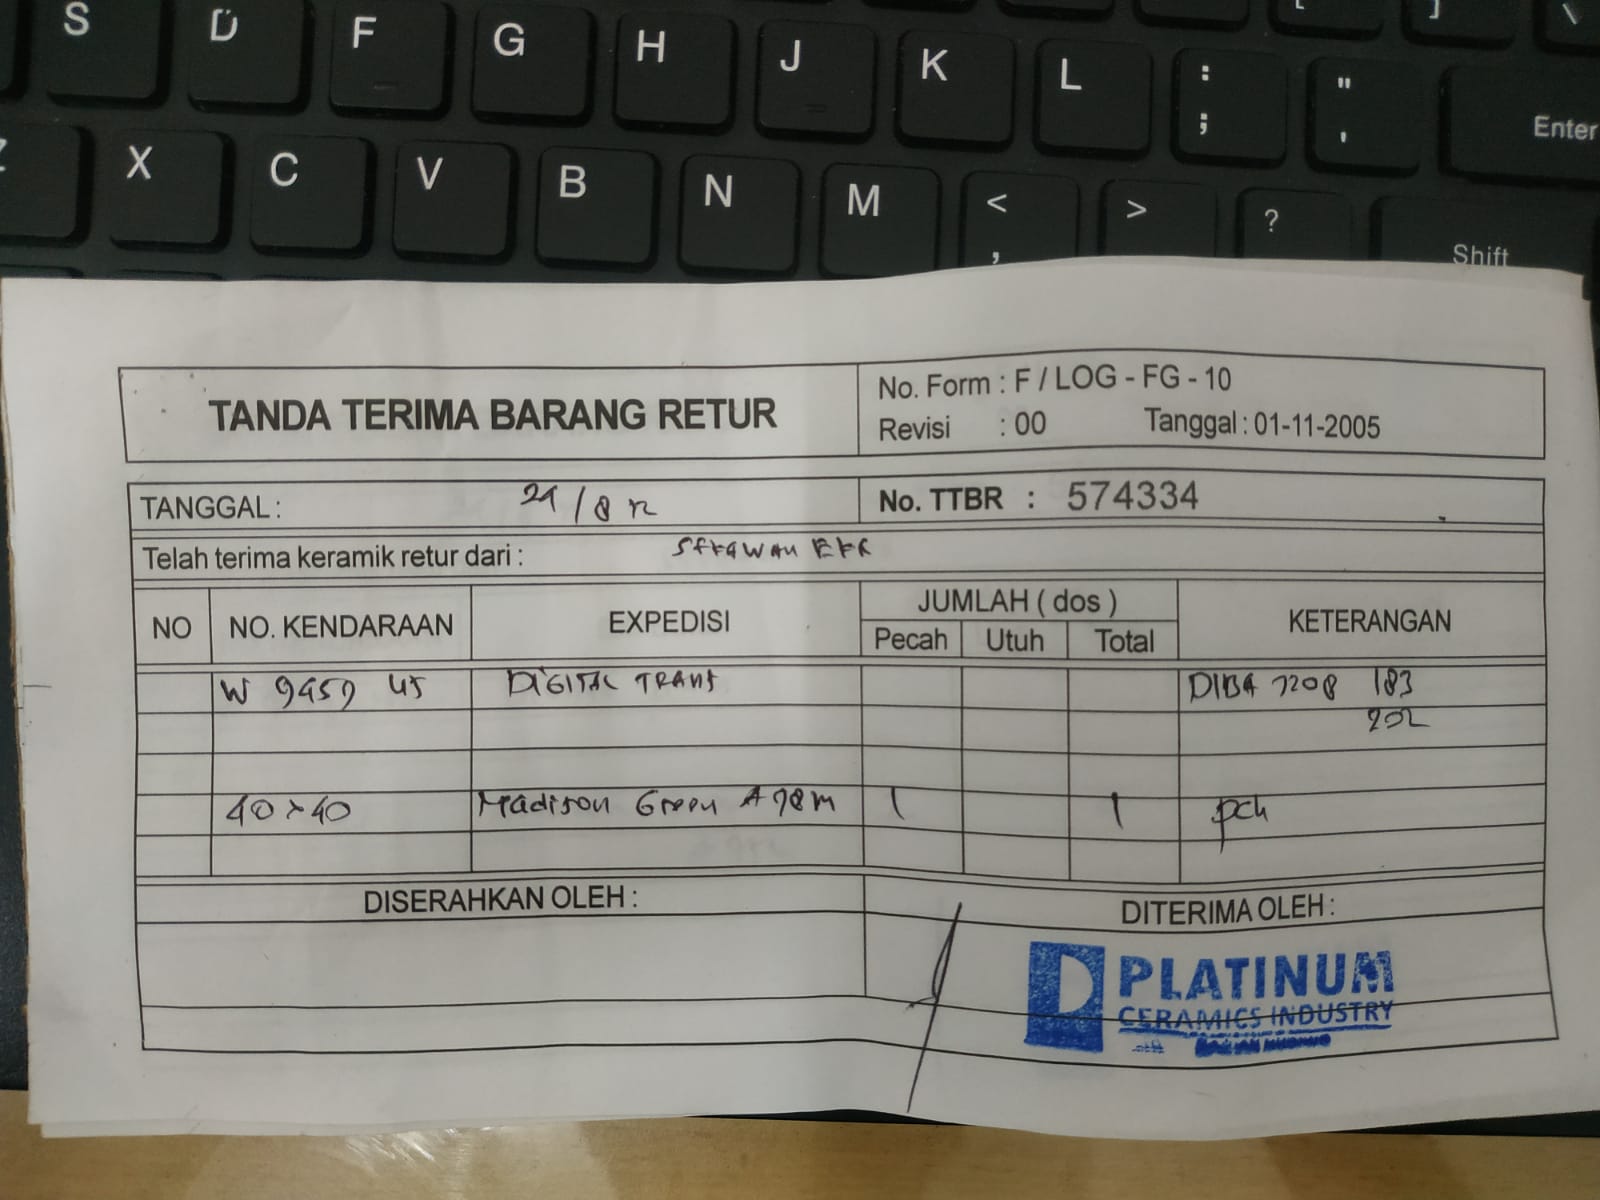 S D F G H J K L : ; " ' Enter
X C V B N M < , > ? Shift
TANDA TERIMA BARANG RETUR
No. Form : F / LOG - FG - 10
Revisi : 00 Tanggal : 01-11-2005
TANGGAL :
No. TTBR : 574334
Telah terima keramik retur dari :
NO NO. KENDARAAN EXPEDISI JUMLAH ( dos ) KETERANGAN
Pecah Utuh Total
W 9459 DIGITAL TRANS 183
202
40 x 40 Madison Green 1 1 pch
DISERAHKAN OLEH :
DITERIMA OLEH :
PLATINUM
CERAMICS INDUSTRY